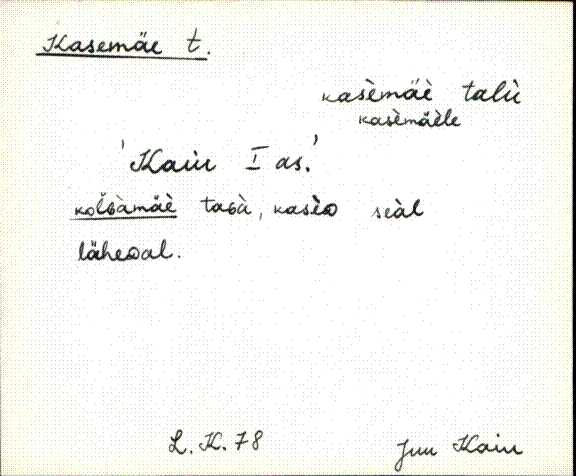 Kasemäe t.
kasèmäè talù
kasèmäèle
'Kaiu I as.'
kol̆ɢàmäè taɢà, kasèᴅ seàl
läheᴅal.
L. K. 78
Juu Kaiu